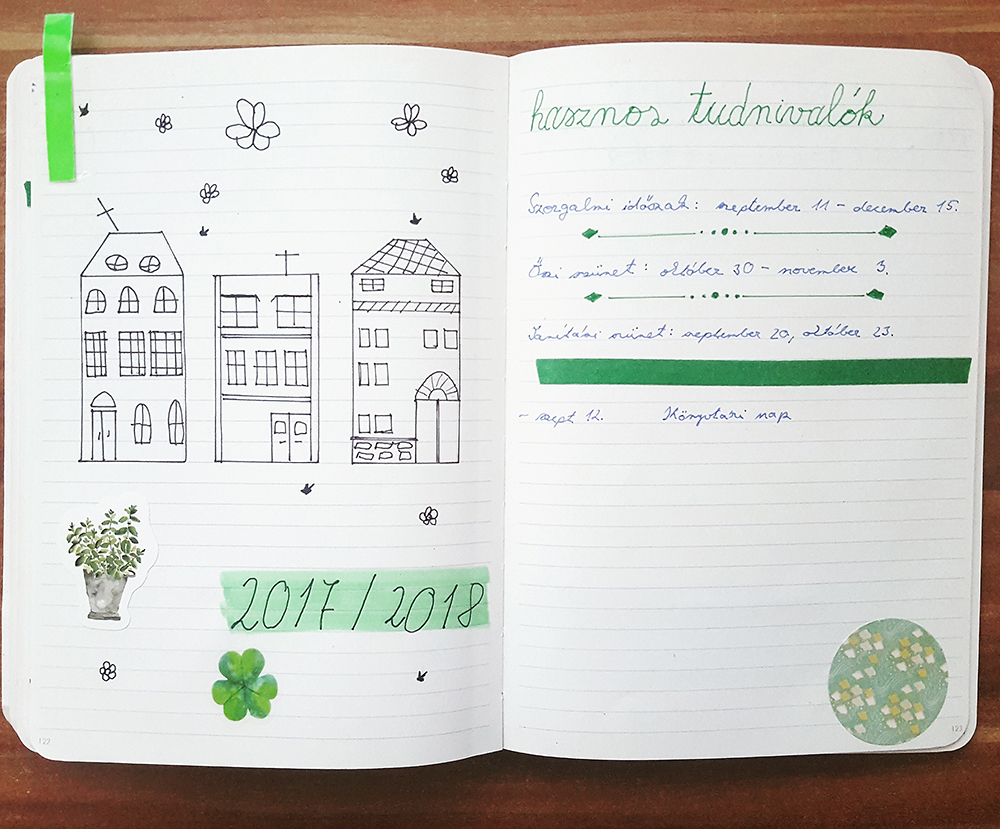 2017/2018
122
hasznos tudnivalók
Szorgalmi időszak: szeptember 11 - december 15.
Őszi szünet: október 30 - november 3.
Tanítási szünet: szeptember 20, október 23.
- szept 12. Könyvtári nap
123